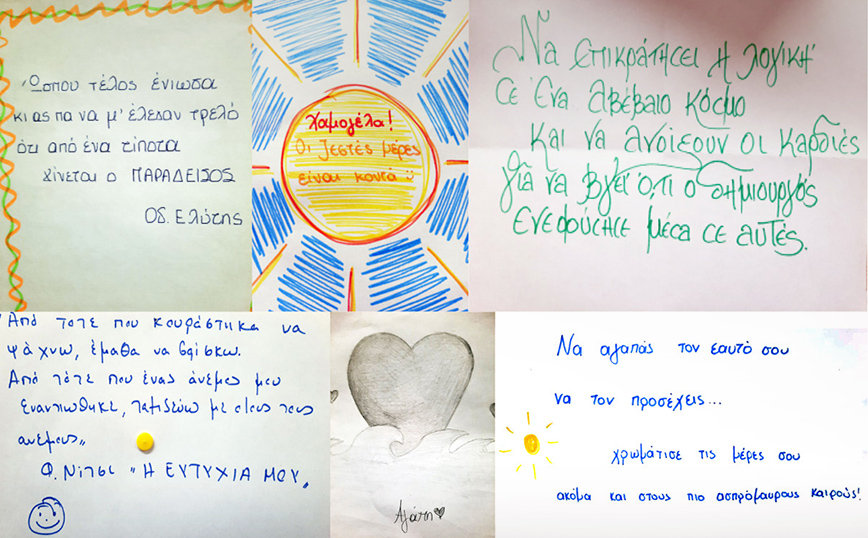 Ώσπου τέλος ένιωσα
κι ας πα να μ' έλεγαν τρελό
ότι από ένα τίποτα
γίνεται ο ΠΑΡΑΔΕΙΣΟΣ
Οδ. Ελύτης
Χαμογέλα!
Οι ζεστές μέρες
είναι κοντά
Να επικρατήσει η λογική
σε ένα αβέβαιο κόσμο
και να ανοίξουν οι καρδιές
για να βγει ό,τι ο δημιουργός
ενεφύσησε μέσα σε αυτές.
Από τοτε που κουράστηκα να
ψάχνω, έμαθα να βρίσκω.
Από τότε που ένας άνεμος μου
εναντιώθηκε, ταξιδεύω με όλους τους
ανέμους"
Φ. Νίτσε "Η ΕΥΤΥΧΙΑ ΜΟΥ"
Αγάπη
Να αγαπάς τον εαυτό σου
να τον προσέχεις...
χρωμάτισε τις μέρες σου
ακόμα και στους πιο ασπρόμαυρους καιρούς!